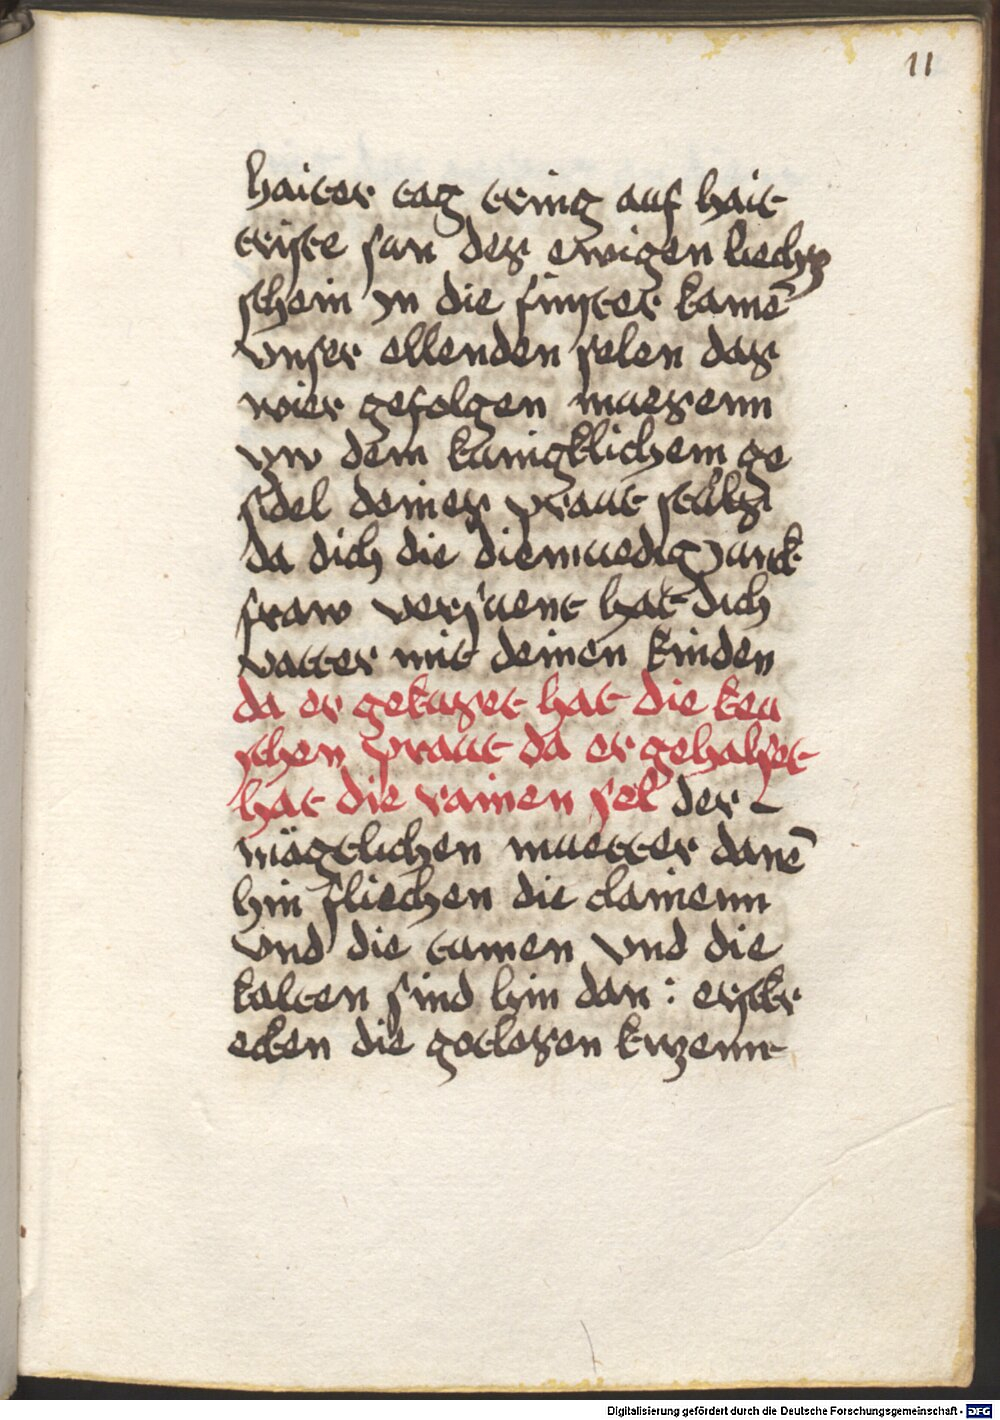 11
haiter tag tring auf hait
triste sun des ewigen liechtz
schein yn die finster kamē
vnser ellenden selen das
wier gefolgen muesenn
zw dem kunigklichem ge
sidel deiner praut
da dich die diemuedig Junck
fraw versuent hat dich
vatter mit deinen kinden
da er gekuset hat die keu
schen praut da er gehalset
hat die rainen sel der
mägtlichen muetter danē
hin fliechen die clainenn
vnd die tumen vnd die
kalten sind hin dan : erschr
ecken die gotlosen
Digitalisierung gefördert durch die Deutsche Forschungsgemeinschaft - DFG